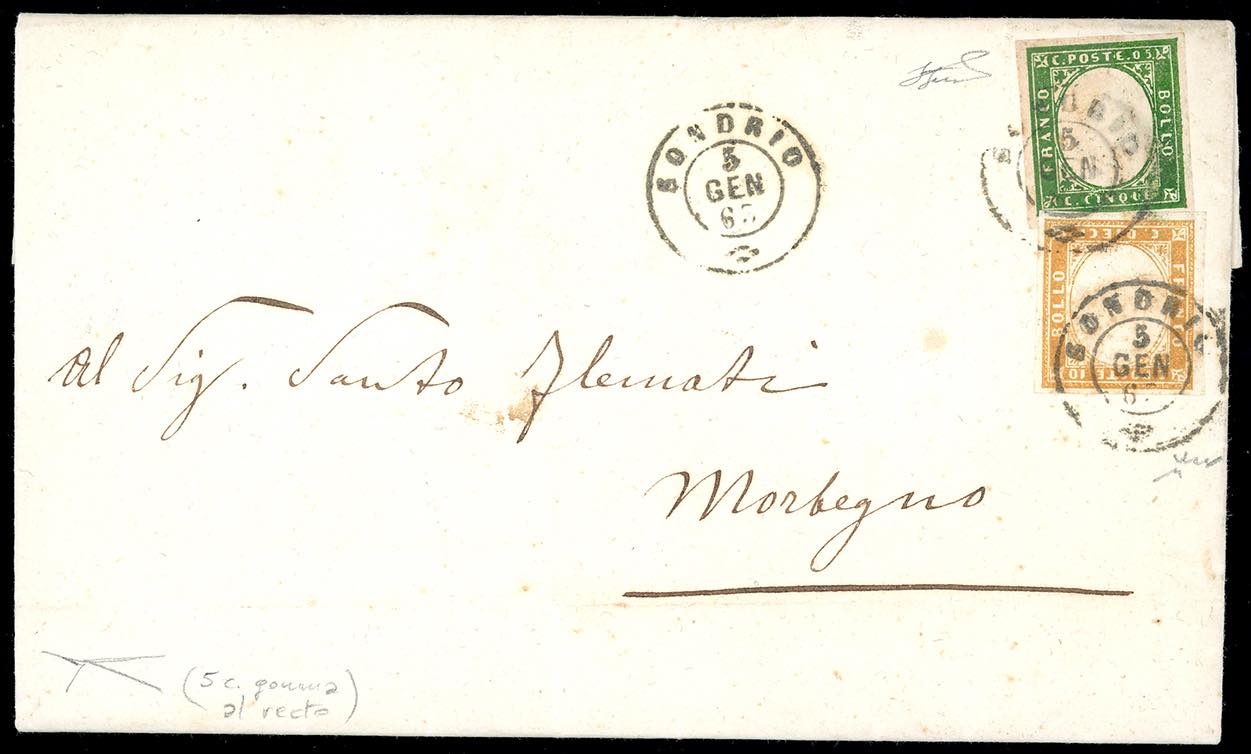 C. POSTE. 05
FRANCO
BOLLO
C. CINQUE
SONDRIO
5
GEN
SONDRIO
5
GEN
BOLLO
10
SONDRIO
5
GEN
Al Sig. Santo
Morbegno
(5 c. gomma
al recto)